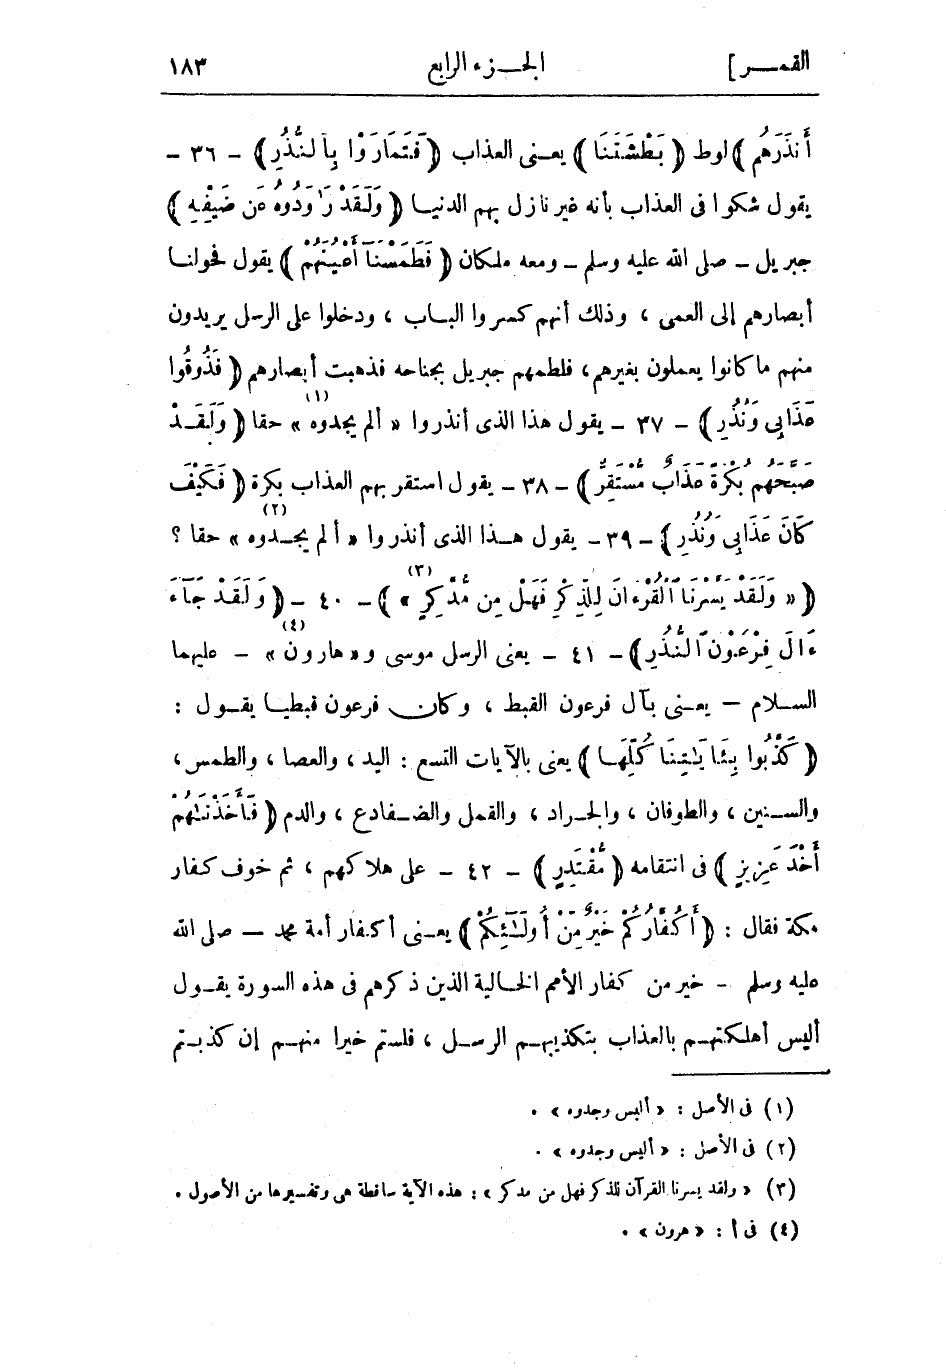 القمر] الجزء الرابع ١٨٣
أَنذَرَهُم ﴾ لوط ﴿ بَطْشَتَنَا ﴾ يعنى العذاب ﴿ فَتَمَارَوْا بِالنُّذُرِ ﴾ - ٣٦ -
يقول شكوا فى العذاب بأنه غير نازل بهم الدنيا ﴿ وَلَقَدْ رَٰوَدُوهُ عَن ضَيْفِهِ ﴾
جبريل - صلى الله عليه وسلم - ومعه ملكان ﴿ فَطَمَسْنَآ أَعْيُنَهُمْ ﴾ يقول فحولنا
أبصارهم إلى العمى ، وذلك أنهم كسروا الباب ، ودخلوا على الرسل يريدون
منهم ما كانوا يعملون بغيرهم ، فلطمهم جبريل بجناحه فذهبت أبصارهم ﴿ فَذُوقُوا
عَذَابِى وَنُذُرِ ﴾ - ٣٧ - يقول هذا الذى أنذروا « ألم يجدوه »(١) حقا ﴿ وَلَقَدْ
صَبَّحَهُم بُكْرَةً عَذَابٌ مُّسْتَقِرٌّ ﴾ - ٣٨ - يقول استقر بهم العذاب بكرة ﴿ فَكَيْفَ
كَانَ عَذَابِى وَنُذُرِ ﴾ - ٣٩ - يقول هذا الذى أنذروا « ألم يجدوه »(٢) حقا ؟
﴿ « وَلَقَدْ يَسَّرْنَا ٱلْقُرْءَانَ لِلذِّكْرِ فَهَلْ مِن مُّدَّكِرٍ »(٣) ﴾ - ٤٠ - ﴿ وَلَقَدْ جَآءَ
ءَالَ فِرْعَوْنَ ٱلنُّذُرِ ﴾ - ٤١ - يعنى الرسل موسى و« هارون »(٤) - عليهما
السلام - يعنى بآل فرعون القبط ، وكان فرعون قبطيا يقول :
﴿ كَذَّبُوا بِـَٔايَـٰتِنَا كُلِّهَا ﴾ يعنى بالآيات التسع : اليد ، والعصا ، والطمس ،
والسنين ، والطوفان ، والجراد ، والقمل والضفادع ، والدم ﴿ فَأَخَذْنَـٰهُمْ
أَخْذَ عَزِيزٍ ﴾ فى انتقامه ﴿ مُّقْتَدِرٍ ﴾ - ٤٢ - على هلاكهم ، ثم خوف كفار
مكة فقال : ﴿ أَكُفَّارُكُمْ خَيْرٌ مِّنْ أُولَـٰٓئِكُمْ ﴾ يعنى أكفار أمة محمد - صلى الله
عليه وسلم - خير من كفار الأمم الخالية الذين ذكرهم فى هذه السورة يقول
أليس أهلكتهم بالعذاب بتكذيبهم الرسل ، فلستم خيرا منهم إن كذبتم
(١) فى الأصل : « أليس وجدوه » .
(٢) فى الأصل : « أليس وجدوه » .
(٣) « ولقد يسرنا القرآن للذكر فهل من مدكر » : هذه الآية ساقطة هى وتفسيرها من الأصول .
(٤) فى أ : « هرون » .